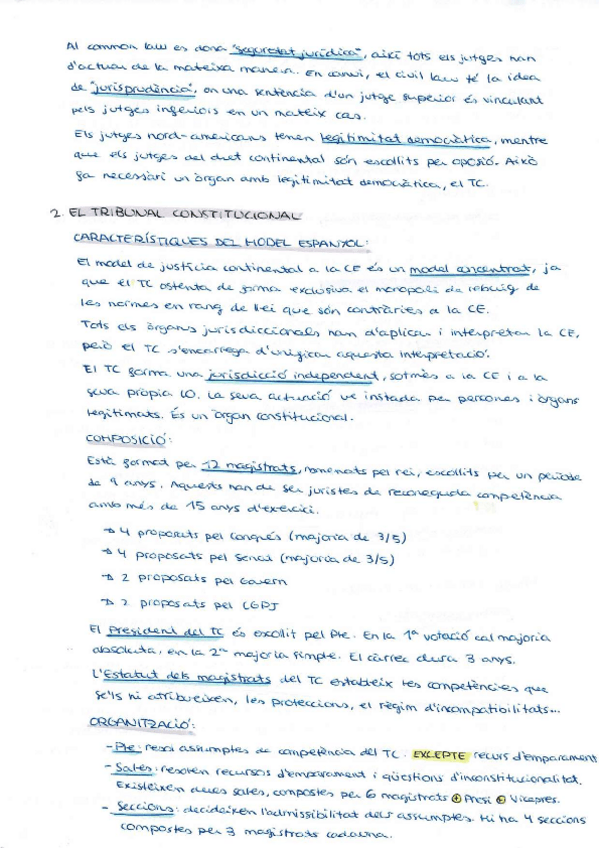 Al common law es dona "seguretat jurídica", així tots els jutges han
d'actuar de la mateixa manera. En canvi, el civil law té la idea
de "jurisprudència", on una sentència d'un jutge superior és vinculant
pels jutges inferiors en un mateix cas.
Els jutges nord-americans tenen legitimitat democràtica, mentre
que els jutges del dret continental són escollits per oposió. Això
fa necessari un òrgan amb legitimitat democràtica, el TC.
2. EL TRIBUNAL CONSTITUCIONAL
CARACTERÍSTIQUES DEL MODEL ESPANYOL:
El model de justícia continental a la CE és un model concentrat, ja
que el TC ostenta de forma exclusiva el monopoli de rebuig de
les normes en rang de llei que són contràries a la CE.
Tots els òrgans jurisdiccionals han d'aplicar i interpretar la CE,
però el TC s'encarrega d'unificar aquesta interpretació.
El TC forma una jurisdicció independent, sotmès a la CE i a la
seva pròpia LO. La seva actuació ve instada per persones i òrgans
legitimats. És un òrgan constitucional.
COMPOSICIÓ:
Està format per 12 magistrats, nomenats pel rei, escollits per un període
de 9 anys. Aquests han de ser juristes de reconeguda competència
amb més de 15 anys d'exercici.
→ 4 proposats pel congrés (majoria de 3/5)
→ 4 proposats pel senat (majoria de 3/5)
→ 2 proposats pel Govern
→ 2 proposats pel CGPJ
El President del TC és escollit pel Ple. En la 1ª votació cal majoria
absoluta, en la 2ª majoria simple. El càrrec dura 3 anys.
L'Estatut dels magistrats del TC estableix les competències que
se'ls hi atribueixen, les proteccions, el règim d'incompatibilitats...
ORGANITZACIÓ:
- Ple: resol assumptes de competència del TC. EXCEPTE recurs d'emparament
- Sales: resolen recursos d'emparament i qüestions d'inconstitucionalitat.
Existeixen dues sales, compostes per 6 magistrats + Presi + Vicepres.
- Seccions: decideixen l'admissibilitat dels assumptes. Hi ha 4 seccions
compostes per 3 magistrats cadauna.